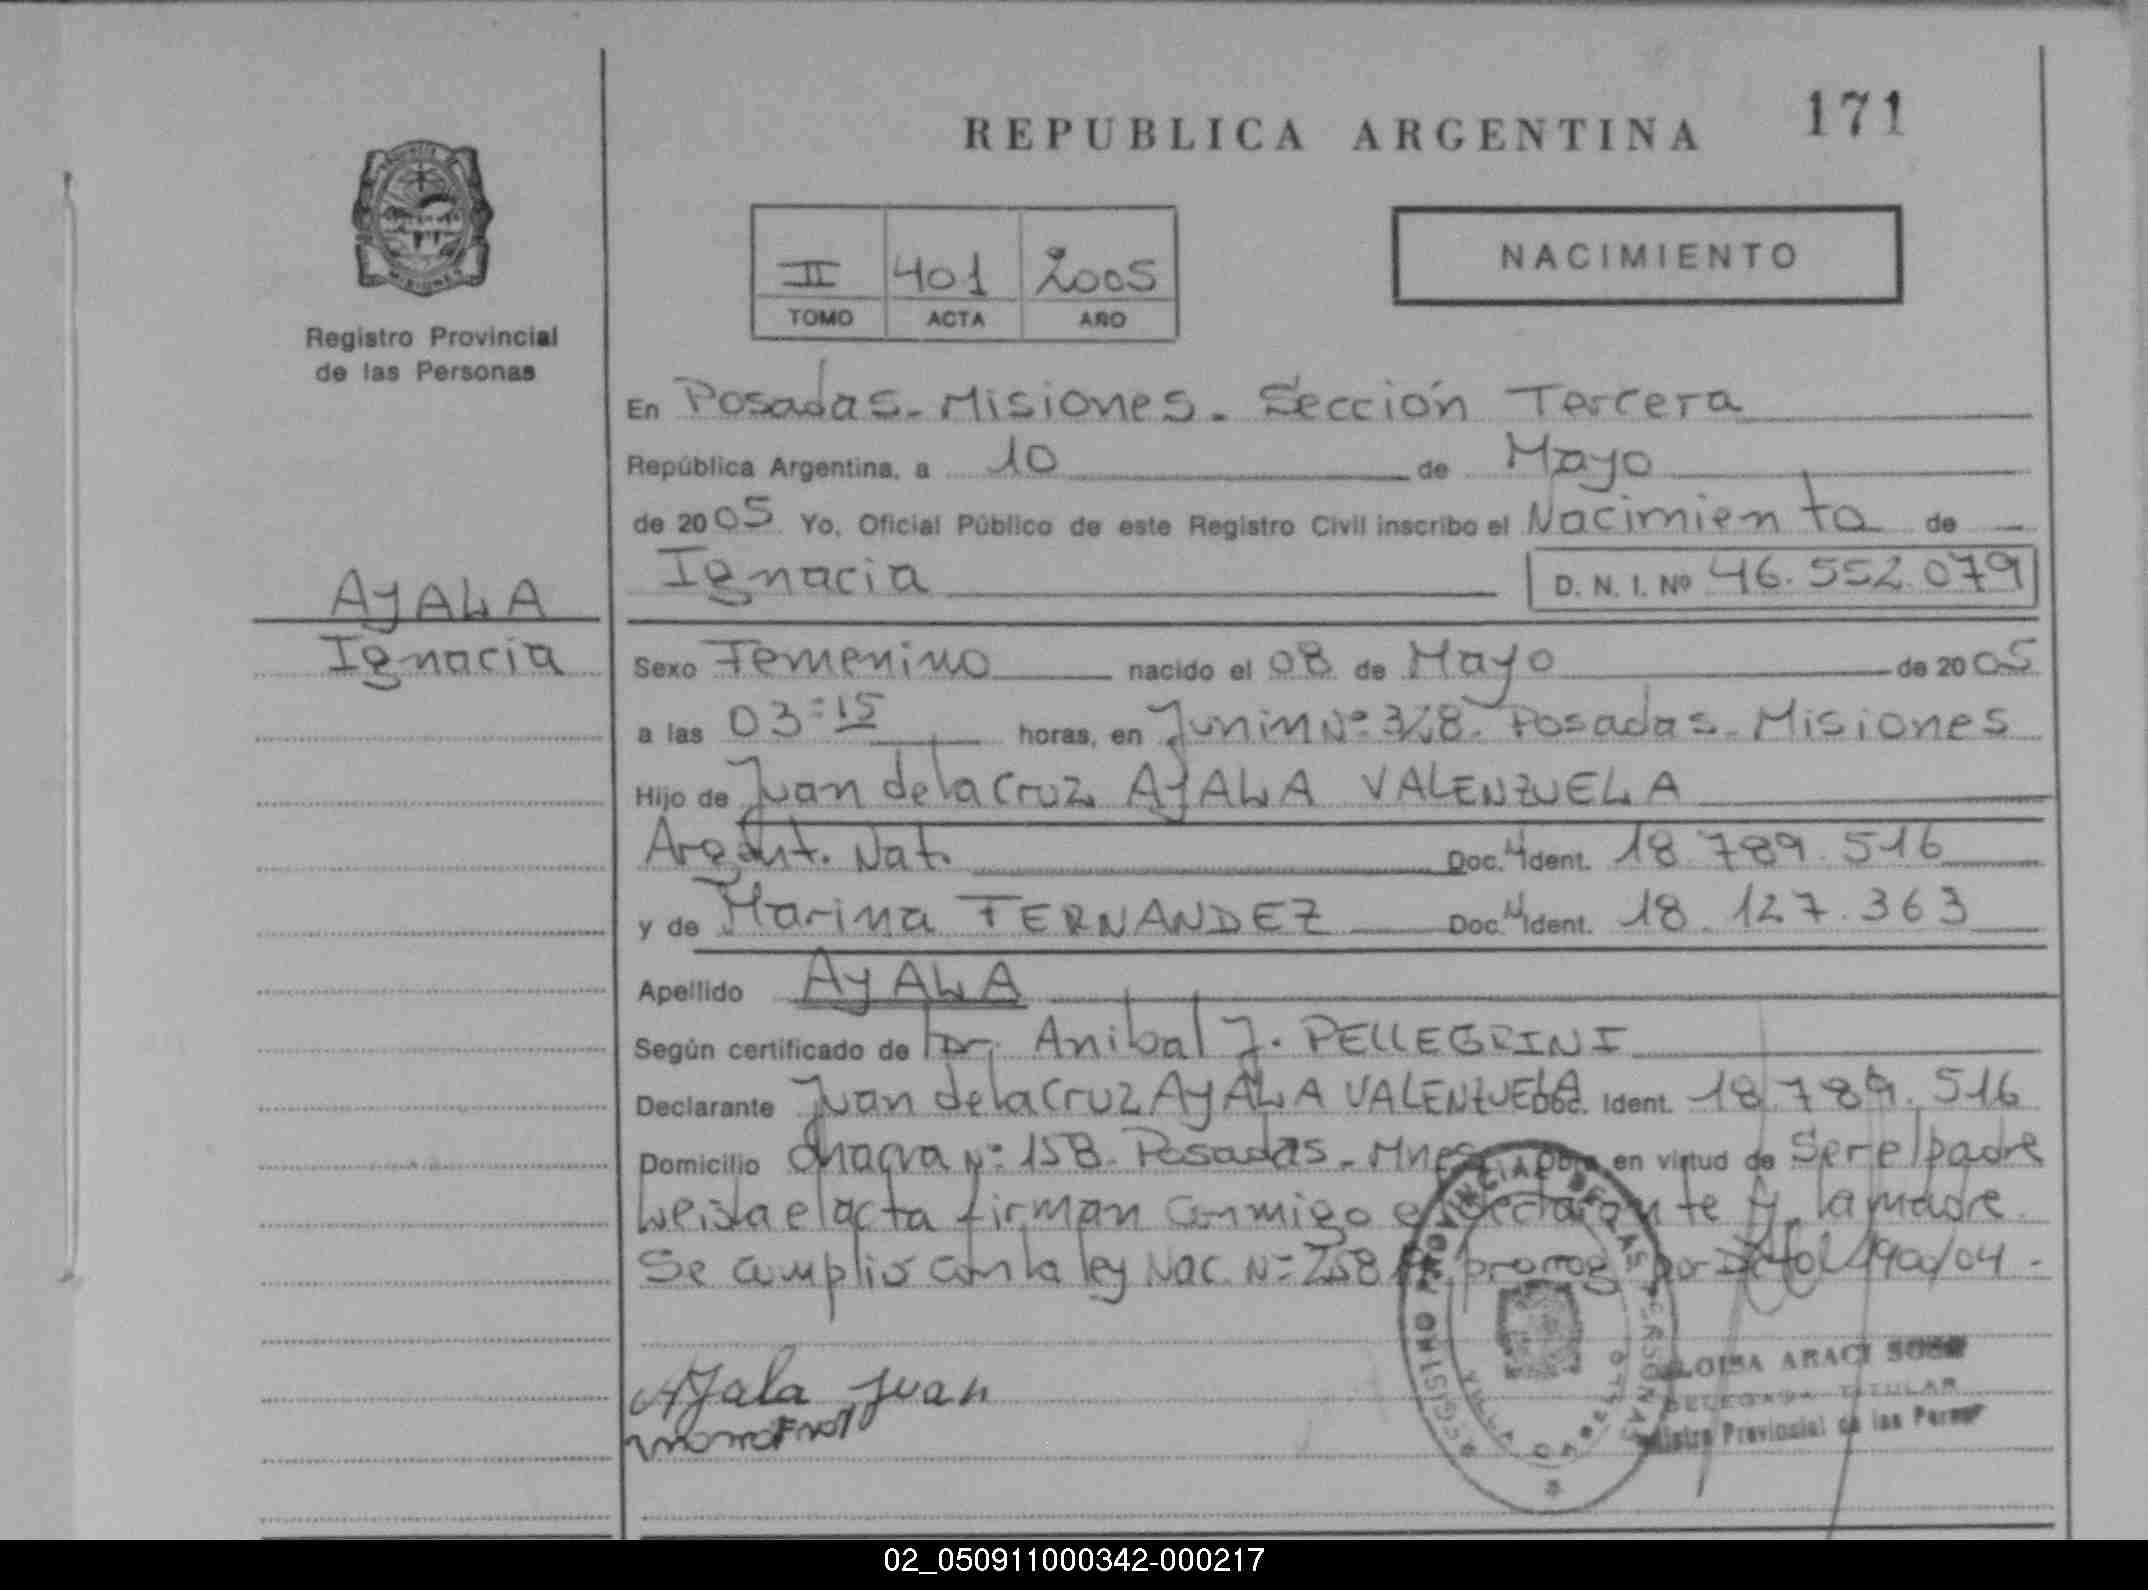 REPUBLICA ARGENTINA 171
NACIMIENTO
II 401 2005
TOMO ACTA AÑO
Registro Provincial
de las Personas
AYALA
Ignacia
En Posadas - Misiones - Sección Tercera
República Argentina, a 10 de Mayo
de 2005 Yo, Oficial Público de este Registro Civil inscribo el Nacimiento de
Ignacia D. N. I. Nº 46.552.079
Sexo Femenino nacido el 08 de Mayo de 2005
a las 03:15 horas, en Junin Nº 328. Posadas - Misiones
Hijo de Juan de la Cruz AYALA VALENZUELA
Argent. Nat. Doc. Ident. 18.789.516
y de Marina FERNANDEZ Doc. Ident. 18.127.363
Apellido AYALA
Según certificado de Dr. Anibal J. PELLEGRINI
Declarante Juan de la Cruz AYALA VALENZUELA Doc. Ident. 18.789.516
Domicilio chacra Nº 158. Posadas - Mnes. obra en virtud de Ser el padre
Leida el acta firman conmigo el declarante y la madre.
Se cumplio con la ley Nac. Nº prorrog por
Ayala Juan
REGISTRO PROVINCIAL DE LAS PERSONAS
ARACI
DELEGADA TITULAR
Provincial de las
02_050911000342-000217